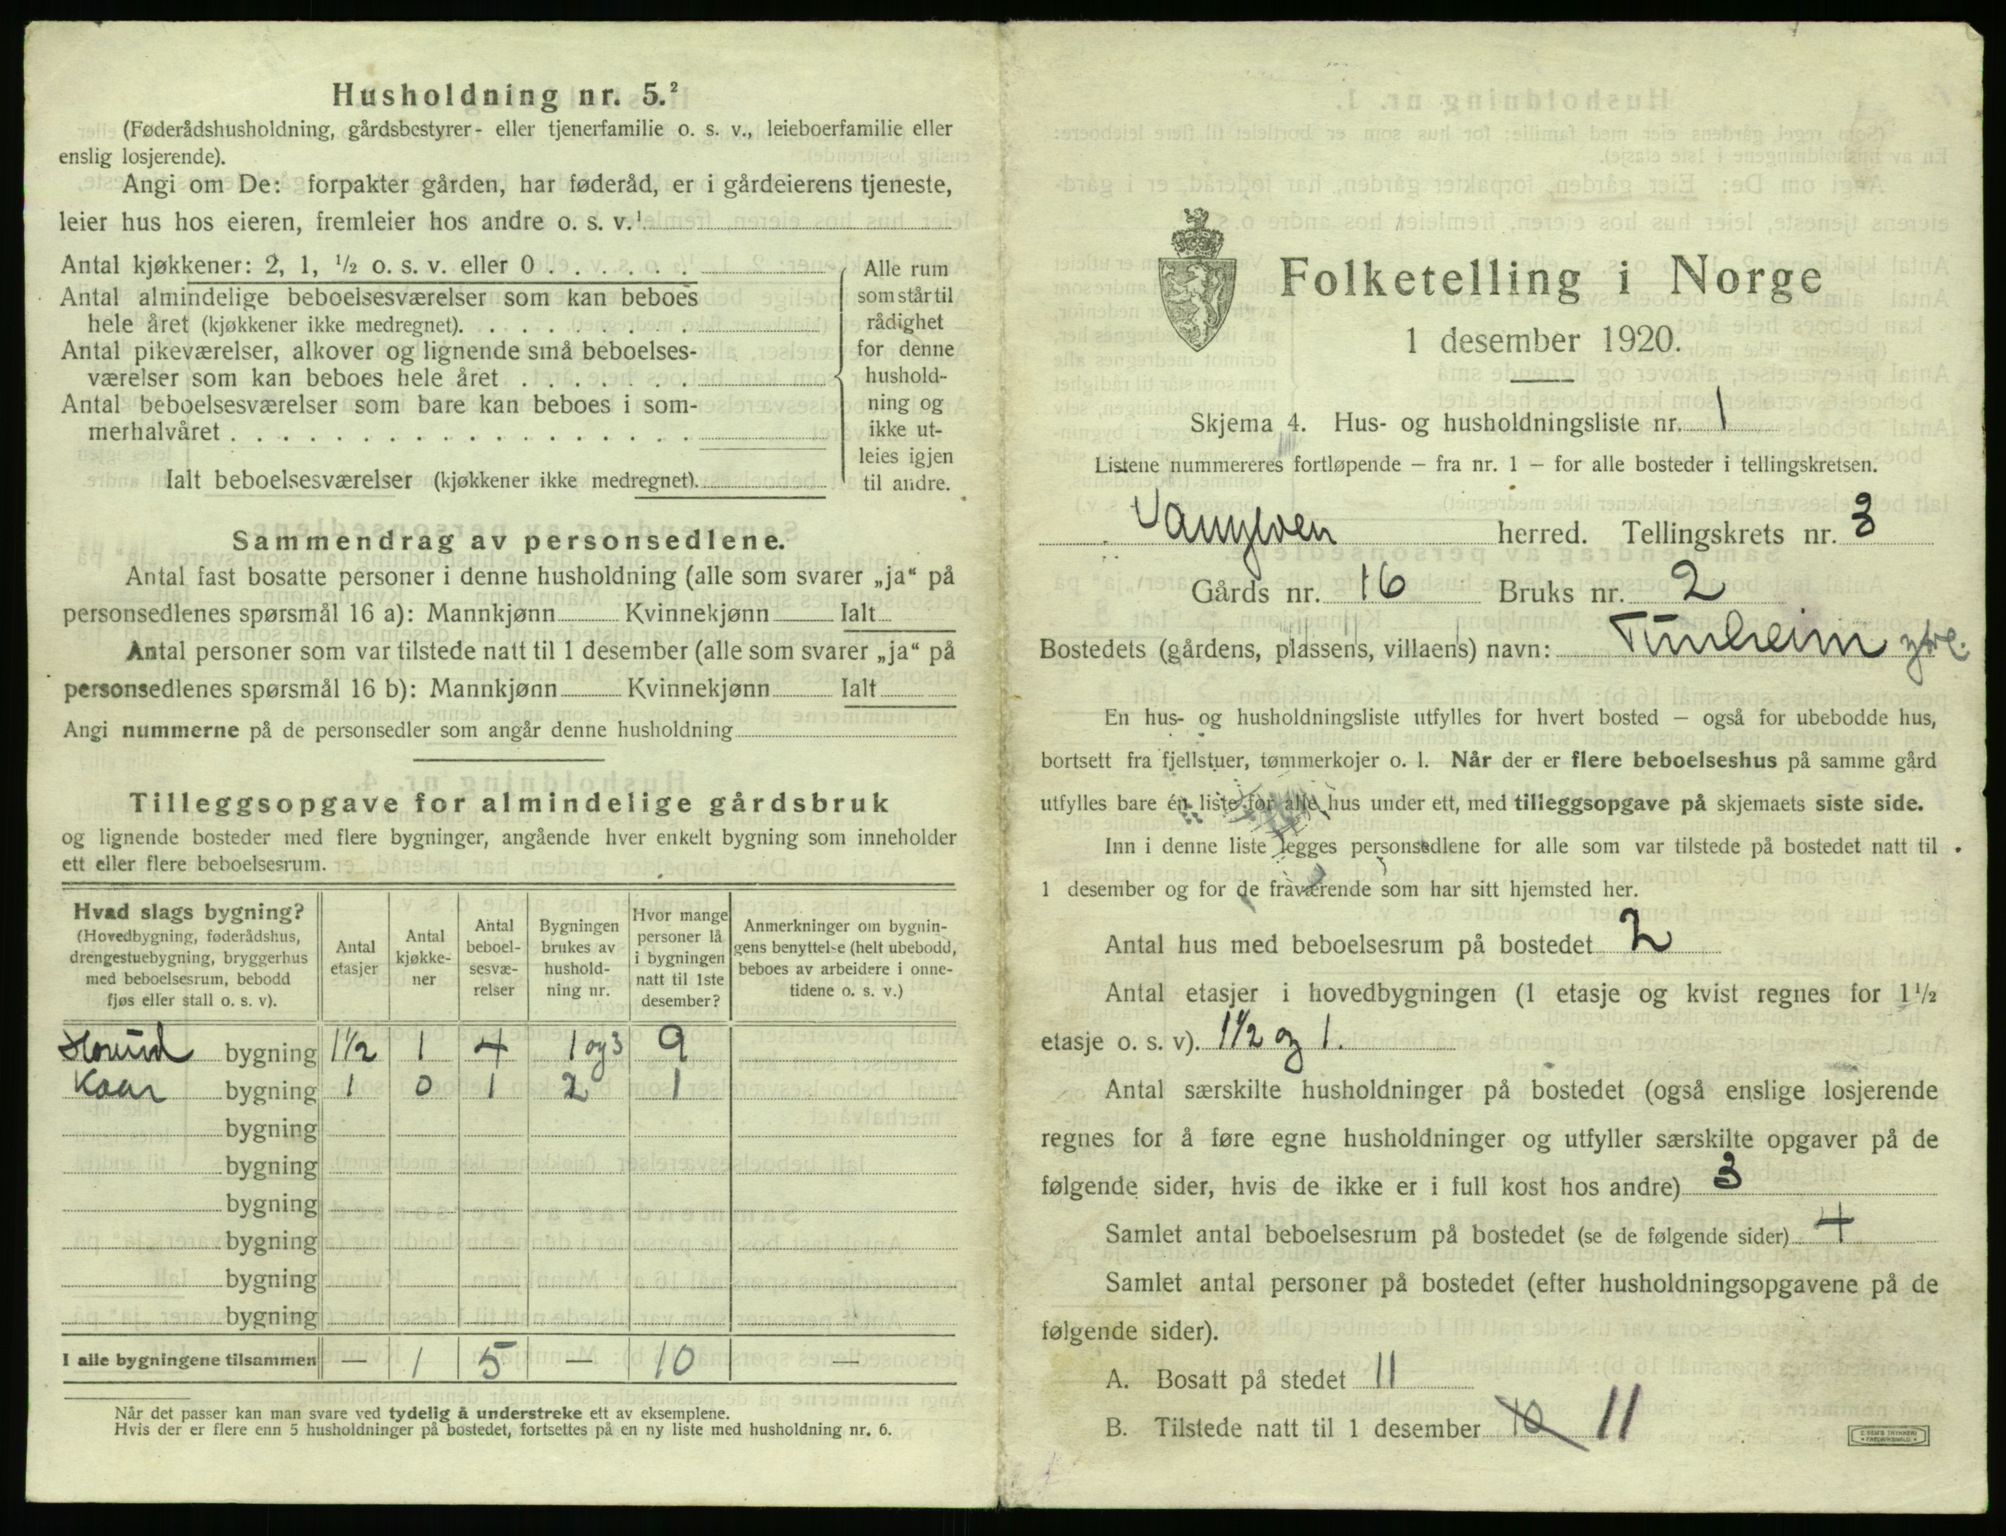 Husholdning nr. 5.²
(Føderådshusholdning, gårdsbestyrer- eller tjenerfamilie o. s. v., leieboerfamilie eller
enslig losjerende).
Angi om De: forpakter gården, har føderåd, er i gårdeierens tjeneste,
leier hus hos eieren, fremleier hos andre o. s. v.¹
Antal kjøkkener: 2, 1, ½ o. s. v. eller 0 . . . . . .
Antal almindelige beboelsesværelser som kan beboes
hele året (kjøkkener ikke medregnet). . . . . . . . .
Antal pikeværelser, alkover og lignende små beboelses-
værelser som kan beboes hele året . . . . . . .
Antal beboelsesværelser som bare kan beboes i som-
merhalvåret . . . . . . . . . . . . . . . . . .
Ialt beboelsesværelser (kjøkkener ikke medregnet).
Alle rum
som står til
rådighet
for denne
hushold-
ning og
ikke ut-
leies igjen
til andre.
Sammendrag av personsedlene.
Antal fast bosatte personer i denne husholdning (alle som svarer „ja“ på
personsedlenes spørsmål 16 a): Mannkjønn Kvinnekjønn Ialt
Antal personer som var tilstede natt til 1 desember (alle som svarer „ja“ på
personsedlenes spørsmål 16 b): Mannkjønn Kvinnekjønn Ialt
Angi nummerne på de personsedler som angår denne husholdning
Tilleggsopgave for almindelige gårdsbruk
og lignende bosteder med flere bygninger, angående hver enkelt bygning som inneholder
ett eller flere beboelsesrum.
Hvad slags bygning?
(Hovedbygning, føderådshus,
drengestuebygning, bryggerhus
med beboelsesrum, bebodd
fjøs eller stall o. s. v).
Antal
etasjer
Antal
kjøkke-
ner
Antal
beboel-
sesvæ-
relser
Bygningen
brukes av
hushold-
ning nr.
Hvor mange
personer lå
i bygningen
natt til 1ste
desember?
Anmerkninger om bygnin-
gens benyttelse (helt ubebodd,
beboes av arbeidere i onne-
tidene o. s. v.)
bygning 1½ 1 4 1 og 3 9
Kaar bygning 1 0 1 2 1
bygning
bygning
bygning
bygning
bygning
bygning
I alle bygningene tilsammen — 1 5 — 10 —
Når det passer kan man svare ved tydelig å understreke ett av eksemplene.
Hvis der er flere enn 5 husholdninger på bostedet, fortsettes på en ny liste med husholdning nr. 6.
Folketelling i Norge
1 desember 1920.
Skjema 4. Hus- og husholdningsliste nr. 1
Listene nummereres fortløpende — fra nr. 1 — for alle bosteder i tellingskretsen.
Vanylven herred. Tellingskrets nr. 3
Gårds nr. 16 Bruks nr. 2
Bostedets (gårdens, plassens, villaens) navn: Tunheim ytre.
En hus- og husholdningsliste utfylles for hvert bosted — også for ubebodde hus,
bortsett fra fjellstuer, tømmerkojer o. l. Når der er flere beboelseshus på samme gård
utfylles bare én liste for alle hus under ett, med tilleggsopgave på skjemaets siste side.
Inn i denne liste legges personsedlene for alle som var tilstede på bostedet natt til
1 desember og for de fraværende som har sitt hjemsted her.
Antal hus med beboelsesrum på bostedet 2
Antal etasjer i hovedbygningen (1 etasje og kvist regnes for 1½
etasje o. s. v). 1½ og 1.
Antal særskilte husholdninger på bostedet (også enslige losjerende
regnes for å føre egne husholdninger og utfyller særskilte opgaver på de
følgende sider, hvis de ikke er i full kost hos andre) 3
Samlet antal beboelsesrum på bostedet (se de følgende sider) 4
Samlet antal personer på bostedet (efter husholdningsopgavene på de
følgende sider).
A. Bosatt på stedet 11
B. Tilstede natt til 1 desember 10 11